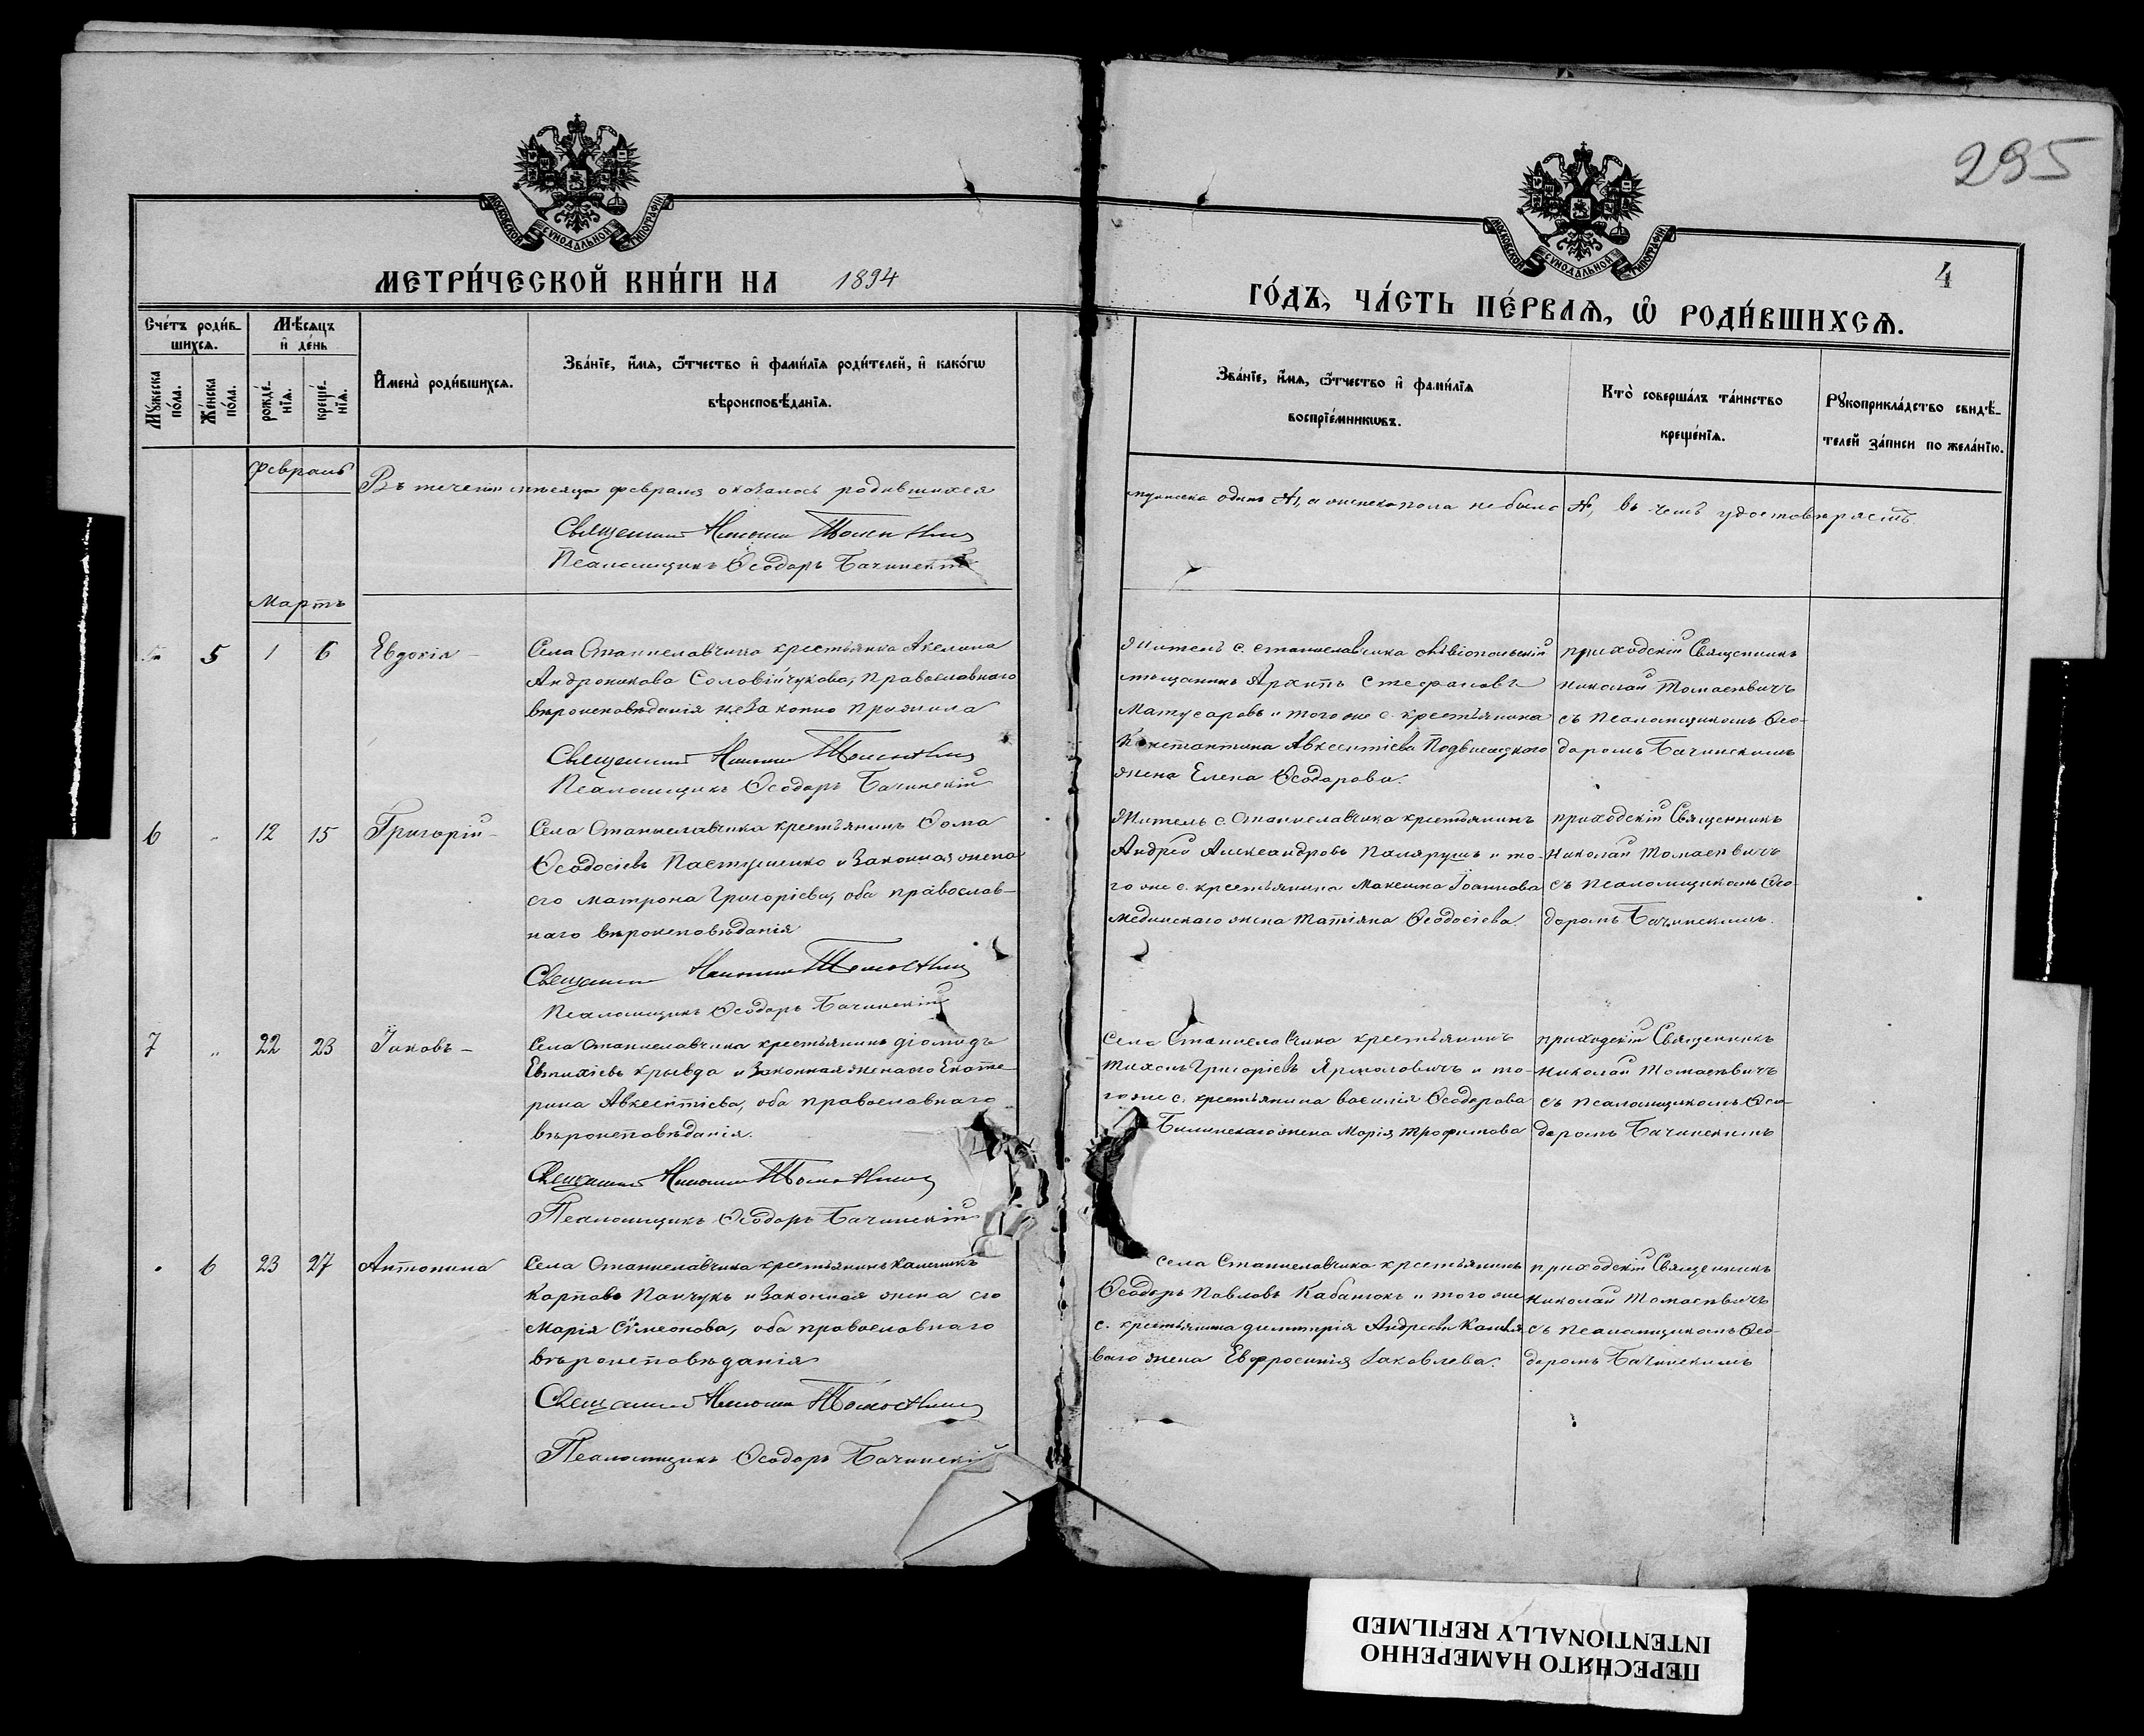 295
МОСКОВСКОЙ СУНОДАЛЬНОЙ ТИПОГРАФІИ
МОСКОВСКОЙ СУНОДАЛЬНОЙ ТИПОГРАФІИ
МЕТРИ́ЧЕСКОЙ КНИ́ГИ НА 1894
ГО́ДЪ, ЧА́СТЬ ПЕ́РВАѦ, Ѡ҆ РОДИ́ВШИХСѦ.
4
Сче́тъ роди́в-
шихсѧ.
Мѣ́сяцъ
и҆ день
Мꙋжеска
по́ла.
Же́нска
по́ла.
рожде́-
нїѧ.
креще́-
нїѧ.
И҆мена̀ роди́вшихсѧ.
Зва́нїе, и҆́мѧ, ѻ҆́тчество и҆ фами́лїѧ роди́телей, и҆ како́гѡ
вѣроисповѣ́данїѧ.
Зва́нїе, и҆́мѧ, ѻ҆́тчество и҆ фами́лїѧ
воспрїе́мникѡвъ.
Кто̀ соверша́лъ та́инство
креще́нїѧ.
Рꙋкоприкла́дство свидѣ́-
телей за́писи по жела́нїю.
Февраль
Въ теченіи мѣсяца февраля оказалось родившихся
мужеска одинъ а женска пола не было въ чемъ удостовѣряемъ.
Священникъ Николай
Псаломщикъ Ѳеодоръ Бачинскій
Мартъ
5 1 6 Евдокія
Села Станиславчика крестьянка Акелина
Андроникова Соловійчукова, православнаго
вѣроисповѣданія незаконно прижила
Священникъ Николай
Псаломщикъ Ѳеодоръ Бачинскій
Житель с. Станиславчика
мѣщанинъ Архипъ Стефановъ
Матусаровъ и того же с. крестьянина
Константина Авксентіева Подвисоцкого
жена Елена Ѳеодорова.
приходскій Священникъ
Николай Томасевичъ
съ псаломщикомъ Ѳео-
доромъ Бачинскимъ
6 " 12 15 Григорій
Села Станиславчика крестьянинъ Ѳома
Ѳеодосіевъ Пастушенко и законная жена
его Матрона Григоріева, оба православ-
наго вѣроисповѣданія
Священникъ Николай
Псаломщикъ Ѳеодоръ Бачинскій
Житель с. Станиславчика крестьянинъ
Андрей Александровъ Паларушъ и то-
го же с. крестьянина Максима Іоаннова
Мединскаго жена Татіяна Ѳеодосіева.
приходскій Священникъ
Николай Томасевичъ
съ псаломщикомъ Ѳео-
доромъ Бачинскимъ.
7 " 22 23 Іаковъ
Села Станиславчика крестьянинъ Діомидъ
Евтихіевъ Крывда и законная жена его Екате-
рина Авксентіева, оба православнаго
вѣроисповѣданія.
Священникъ Николай
Псаломщикъ Ѳеодоръ Бачинскій
Села Станиславчика крестьянинъ
Тихонъ Григоріевъ Ярмоловичъ и то-
го же с. крестьянина Василія Ѳеодорова
Билинскаго жена Марія Трофимова
приходскій Священникъ
Николай Томасевичъ
съ псаломщикомъ Ѳео-
доромъ Бачинскимъ
" 6 23 27 Антонина
Села Станиславчика крестьянинъ Калиникъ
Карповъ Панчукъ и законная жена его
Марія Сѵмеонова, оба православнаго
вѣроисповѣданія
Священникъ Николай
Псаломщикъ Ѳеодоръ Бачинскій
Села Станиславчика крестьянинъ
Ѳеодоръ Павловъ Кабанюкъ и того же
с. крестьянина Димитрія Андреева
жена Евфросинія Іаковлева.
приходскій Священникъ
Николай Томасевичъ
съ псаломщикомъ Ѳео-
доромъ Бачинскимъ
ПЕРЕСНЯТО НАМЕРЕННО
INTENTIONALLY REFILMED